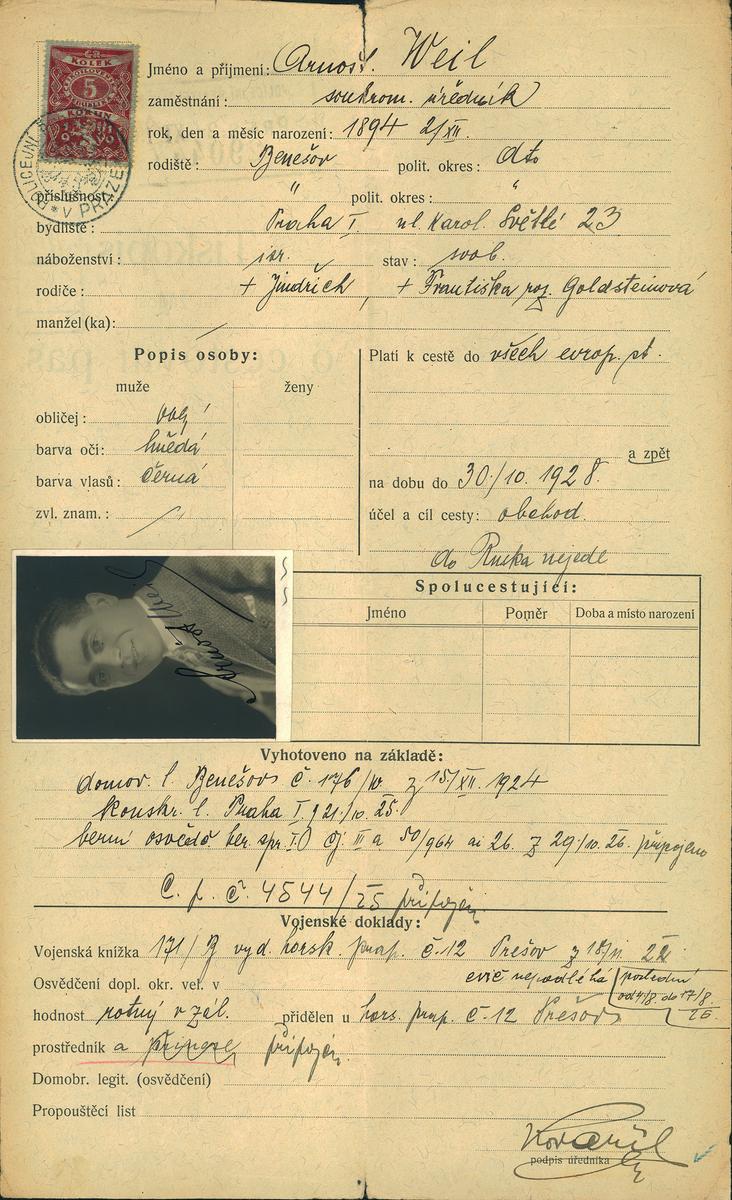 KOLEK
5
KORUN
V PRAZE
Jméno a příjmení: Arnošt Weil
zaměstnání: soukrom. úředník
rok, den a měsíc narození: 1894 2/XII.
rodiště: Benešov polit. okres: dto
příslušnost: " polit. okres: "
bydliště: Praha I. ul. Karol. Světlé 23
náboženství: isr. stav: svob.
rodiče: + Jindřich, + Františka roz. Goldsteinová
manžel (ka): /
Popis osoby:
muže ženy
obličej:
barva očí: hnědá
barva vlasů: černá
zvl. znam.: /
Platí k cestě do všech evrop. st.
a zpět
na dobu do 30./10. 1928.
účel a cíl cesty: obchod.
do Ruska nejede
Spolucestující:
Jméno Poměr Doba a místo narození
Vyhotoveno na základě:
domov. l. Benešov č. 176/IV. z 15/XII. 1924
konskr. l. Praha I. 21./10. 25.
berní osvědč. ber. spr. I. III a 50/964 ai 26. z 29/10. 26. připojeno
C. p. č. 4544/25 připojen
Vojenské doklady:
Vojenská knížka 171/B vyd. horsk. prap. č. 12 Prešov z
cvič. nepodléhá poslední
od 4/8. do 17/8.
Osvědčení dopl. okr. vel. v
hodnost rotný v zál. přidělen u hors. prap. č. 12 Prešov
prostředník a připojen.
Domobr. legit. (osvědčení)
Propouštěcí list
podpis úředníka